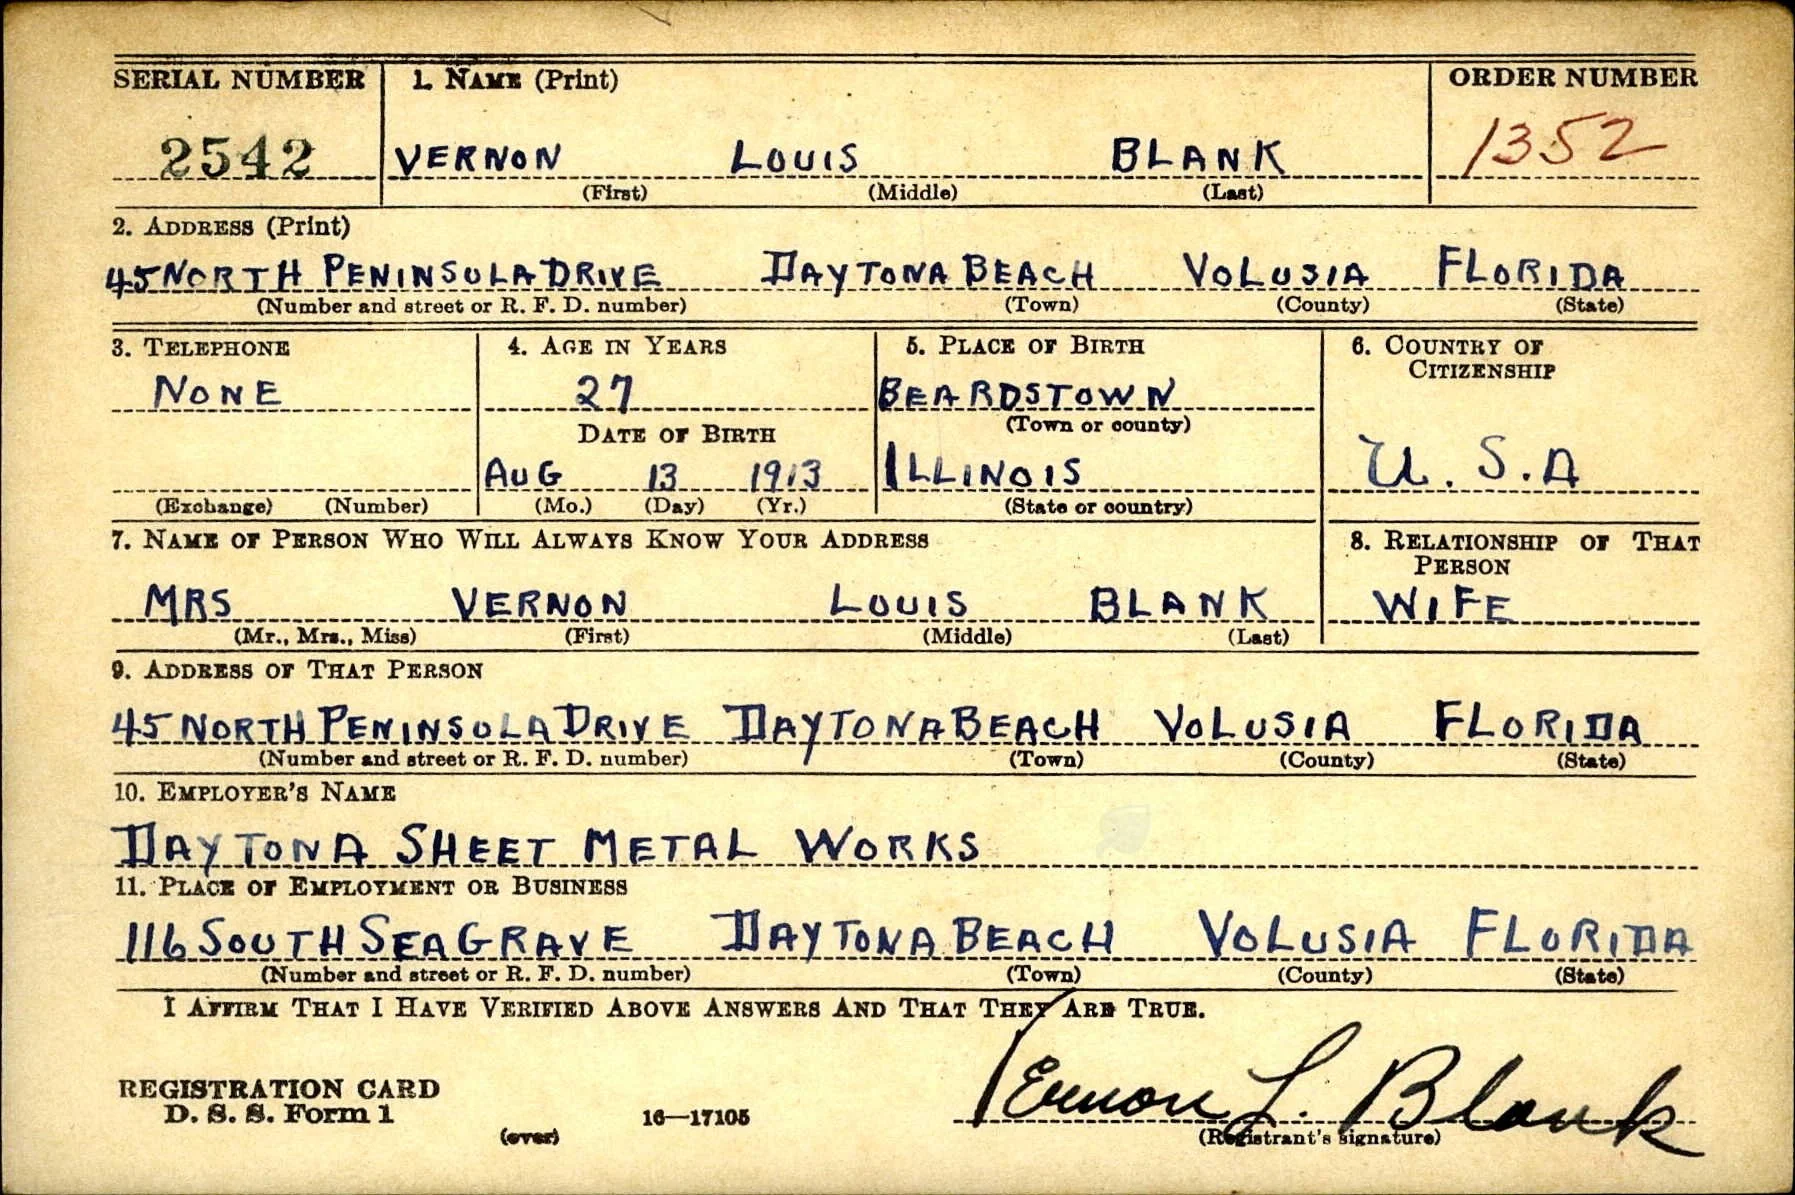 SERIAL NUMBER 1. NAME (Print) ORDER NUMBER
2542 VERNON LOUIS BLANK 1352
(First) (Middle) (Last)
2. ADDRESS (Print)
45 NORTH PENINSULA DRIVE DAYTONA BEACH VOLUSIA FLORIDA
(Number and street or R. F. D. number) (Town) (County) (State)
3. TELEPHONE 4. AGE IN YEARS 5. PLACE OF BIRTH 6. COUNTRY OF
CITIZENSHIP
NONE 27 BEARDSTOWN
(Town or county)
DATE OF BIRTH
AUG 13 1913 ILLINOIS U. S. A
(Exchange) (Number) (Mo.) (Day) (Yr.) (State or country)
7. NAME OF PERSON WHO WILL ALWAYS KNOW YOUR ADDRESS 8. RELATIONSHIP OF THAT
PERSON
MRS VERNON LOUIS BLANK WIFE
(Mr., Mrs., Miss) (First) (Middle) (Last)
9. ADDRESS OF THAT PERSON
45 NORTH PENINSULA DRIVE DAYTONA BEACH VOLUSIA FLORIDA
(Number and street or R. F. D. number) (Town) (County) (State)
10. EMPLOYER'S NAME
DAYTONA SHEET METAL WORKS
11. PLACE OF EMPLOYMENT OR BUSINESS
116 SOUTH SEAGRAVE DAYTONA BEACH VOLUSIA FLORIDA
(Number and street or R. F. D. number) (Town) (County) (State)
I AFFIRM THAT I HAVE VERIFIED ABOVE ANSWERS AND THAT THEY ARE TRUE.
REGISTRATION CARD
D. S. S. Form 1 16—17105 Vernon L. Blank
(over) (Registrant's signature)